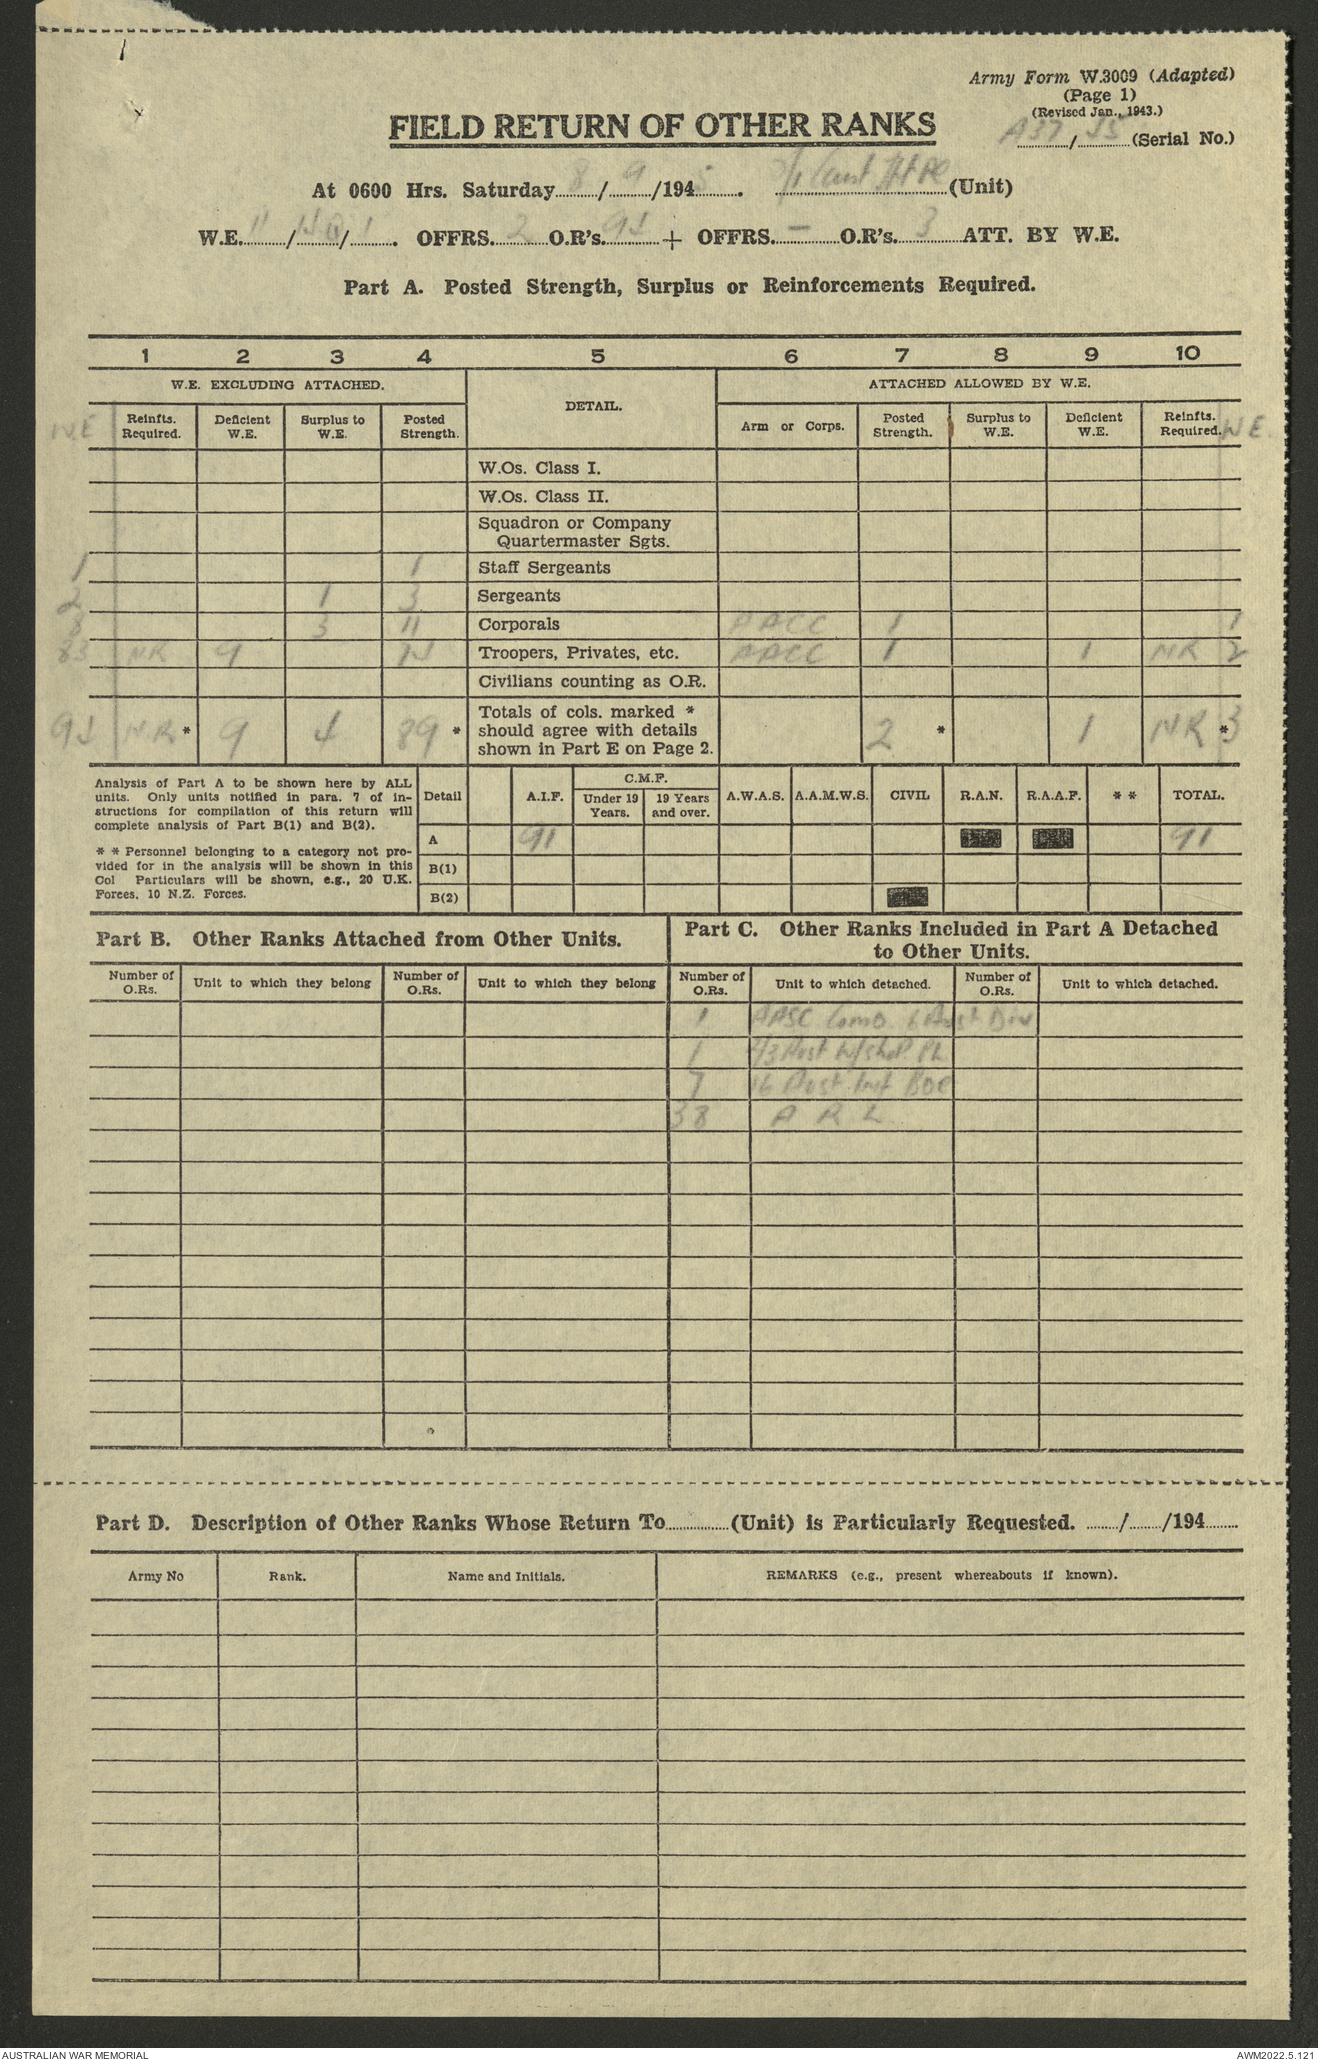 Army Form W.3009 (Adapted)
(Page 1)
(Revised Jan., 1943.)
A37/ (Serial No.)
FIELD RETURN OF OTHER RANKS
At 0600 Hrs. Saturday 8/9/1945. (Unit)
W.E. 11/ /1. OFFRS. 2 O.R's. + OFFRS. – O.R's. 3 ATT. BY W.E.
Part A. Posted Strength, Surplus or Reinforcements Required.
1 2 3 4 5 6 7 8 9 10
W.E. EXCLUDING ATTACHED. DETAIL. ATTACHED ALLOWED BY W.E.
W.E. Reinfts. Required. Deficient W.E. Surplus to W.E. Posted Strength. Arm or Corps. Posted Strength. Surplus to W.E. Deficient W.E. Reinfts. Required. W.E.
W.Os. Class I.
W.Os. Class II.
Squadron or Company
Quartermaster Sgts.
1 1 Staff Sergeants
2 1 3 Sergeants
8 3 11 Corporals AACC 1 1
NR 9 Troopers, Privates, etc. AACC 1 1 NR 2
Civilians counting as O.R.
NR * 9 4 89 * Totals of cols. marked * should agree with details shown in Part E on Page 2. 2 * 1 NR * 3
Analysis of Part A to be shown here by ALL
units. Only units notified in para. 7 of in-
structions for compilation of this return will
complete analysis of Part B(1) and B(2).
* * Personnel belonging to a category not pro-
vided for in the analysis will be shown in this
Col Particulars will be shown, e.g., 20 U.K.
Forces, 10 N.Z. Forces.
Detail A.I.F. C.M.F. Under 19 Years. 19 Years and over. A.W.A.S. A.A.M.W.S. CIVIL R.A.N. R.A.A.F. * * TOTAL.
A 91 91
B(1)
B(2)
Part B. Other Ranks Attached from Other Units.
Part C. Other Ranks Included in Part A Detached
to Other Units.
Number of O.Rs. Unit to which they belong Number of O.Rs. Unit to which they belong Number of O.Rs. Unit to which detached. Number of O.Rs. Unit to which detached.
1 AASC Comd 6 Aust Div
1 2/3 Aust W/shop PL
7 16 Aust Inf Bde
38 A R L
Part D. Description of Other Ranks Whose Return To (Unit) is Particularly Requested. / /194
Army No Rank. Name and Initials. REMARKS (e.g., present whereabouts if known).
AUSTRALIAN WAR MEMORIAL AWM2022.5.121